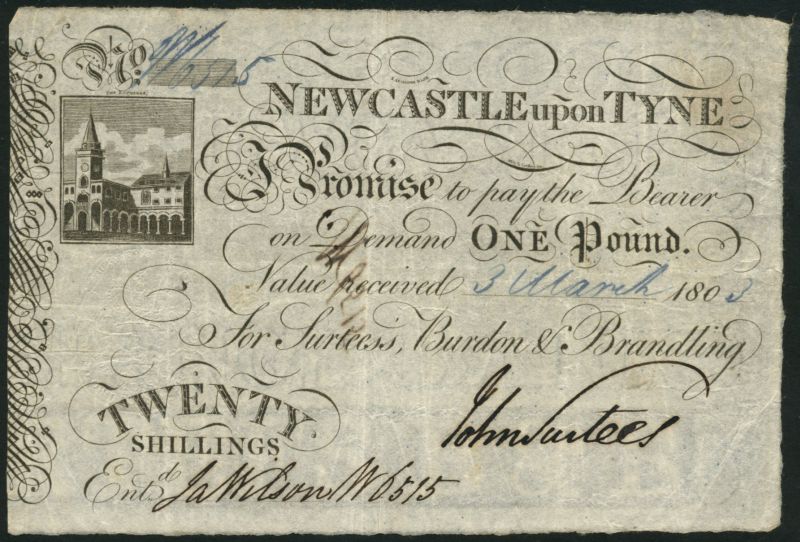 No W6515
THE EXCHANGE
NEWCASTLE upon TYNE
I Promise to pay the Bearer
on Demand ONE Pound.
Value received 3 March 1803
For Surtees, Burdon & Brandling
TWENTY
SHILLINGS
John Surtees
Entd. Ja Wilson W6515